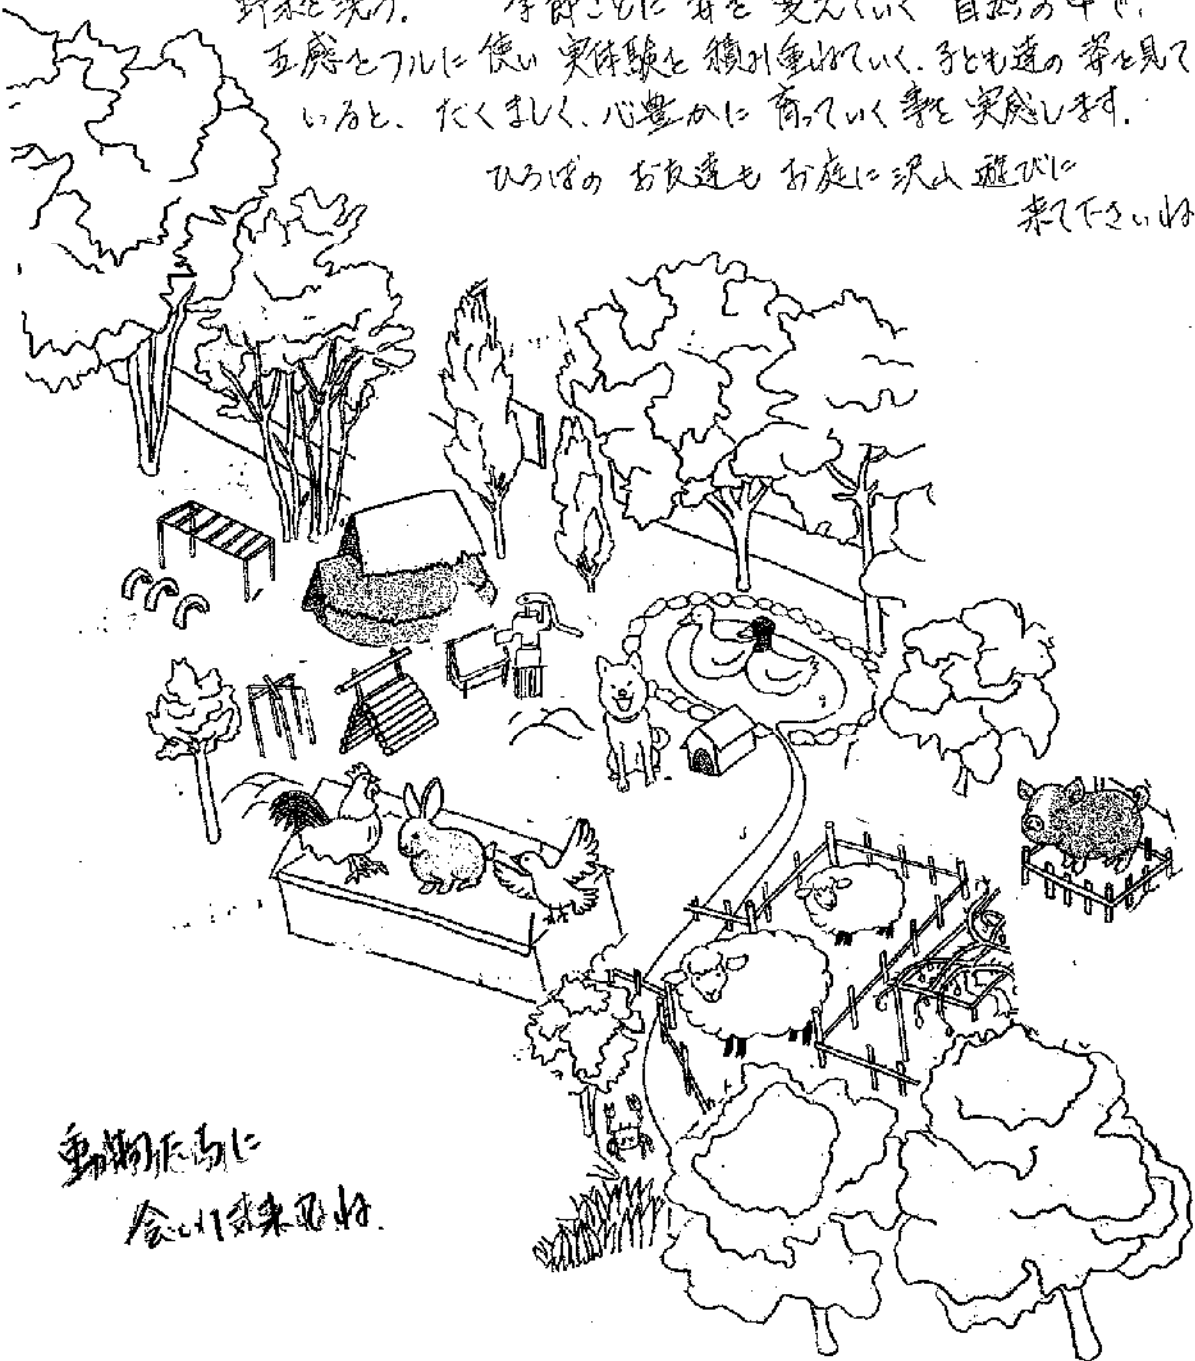 野菜を洗う。 季節ごとに姿を変えていく自然の中で、
五感をフルに使い実体験を積み重ねていく、子ども達の姿を見て
いると、たくましく、心豊かに育っていく事を実感します。
ひろばのお友達もお庭に沢山遊びに
来て下さいね
動物たちに
会いに来てね。